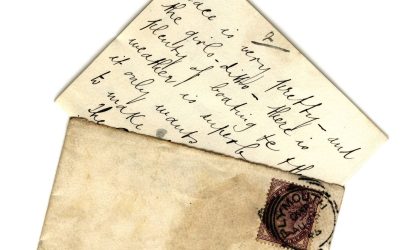 2
place is very pretty - and
the girls - ditto - there is
plenty of boating &c
weather is superb &
it only wants
to make
the
PLYMOUTH